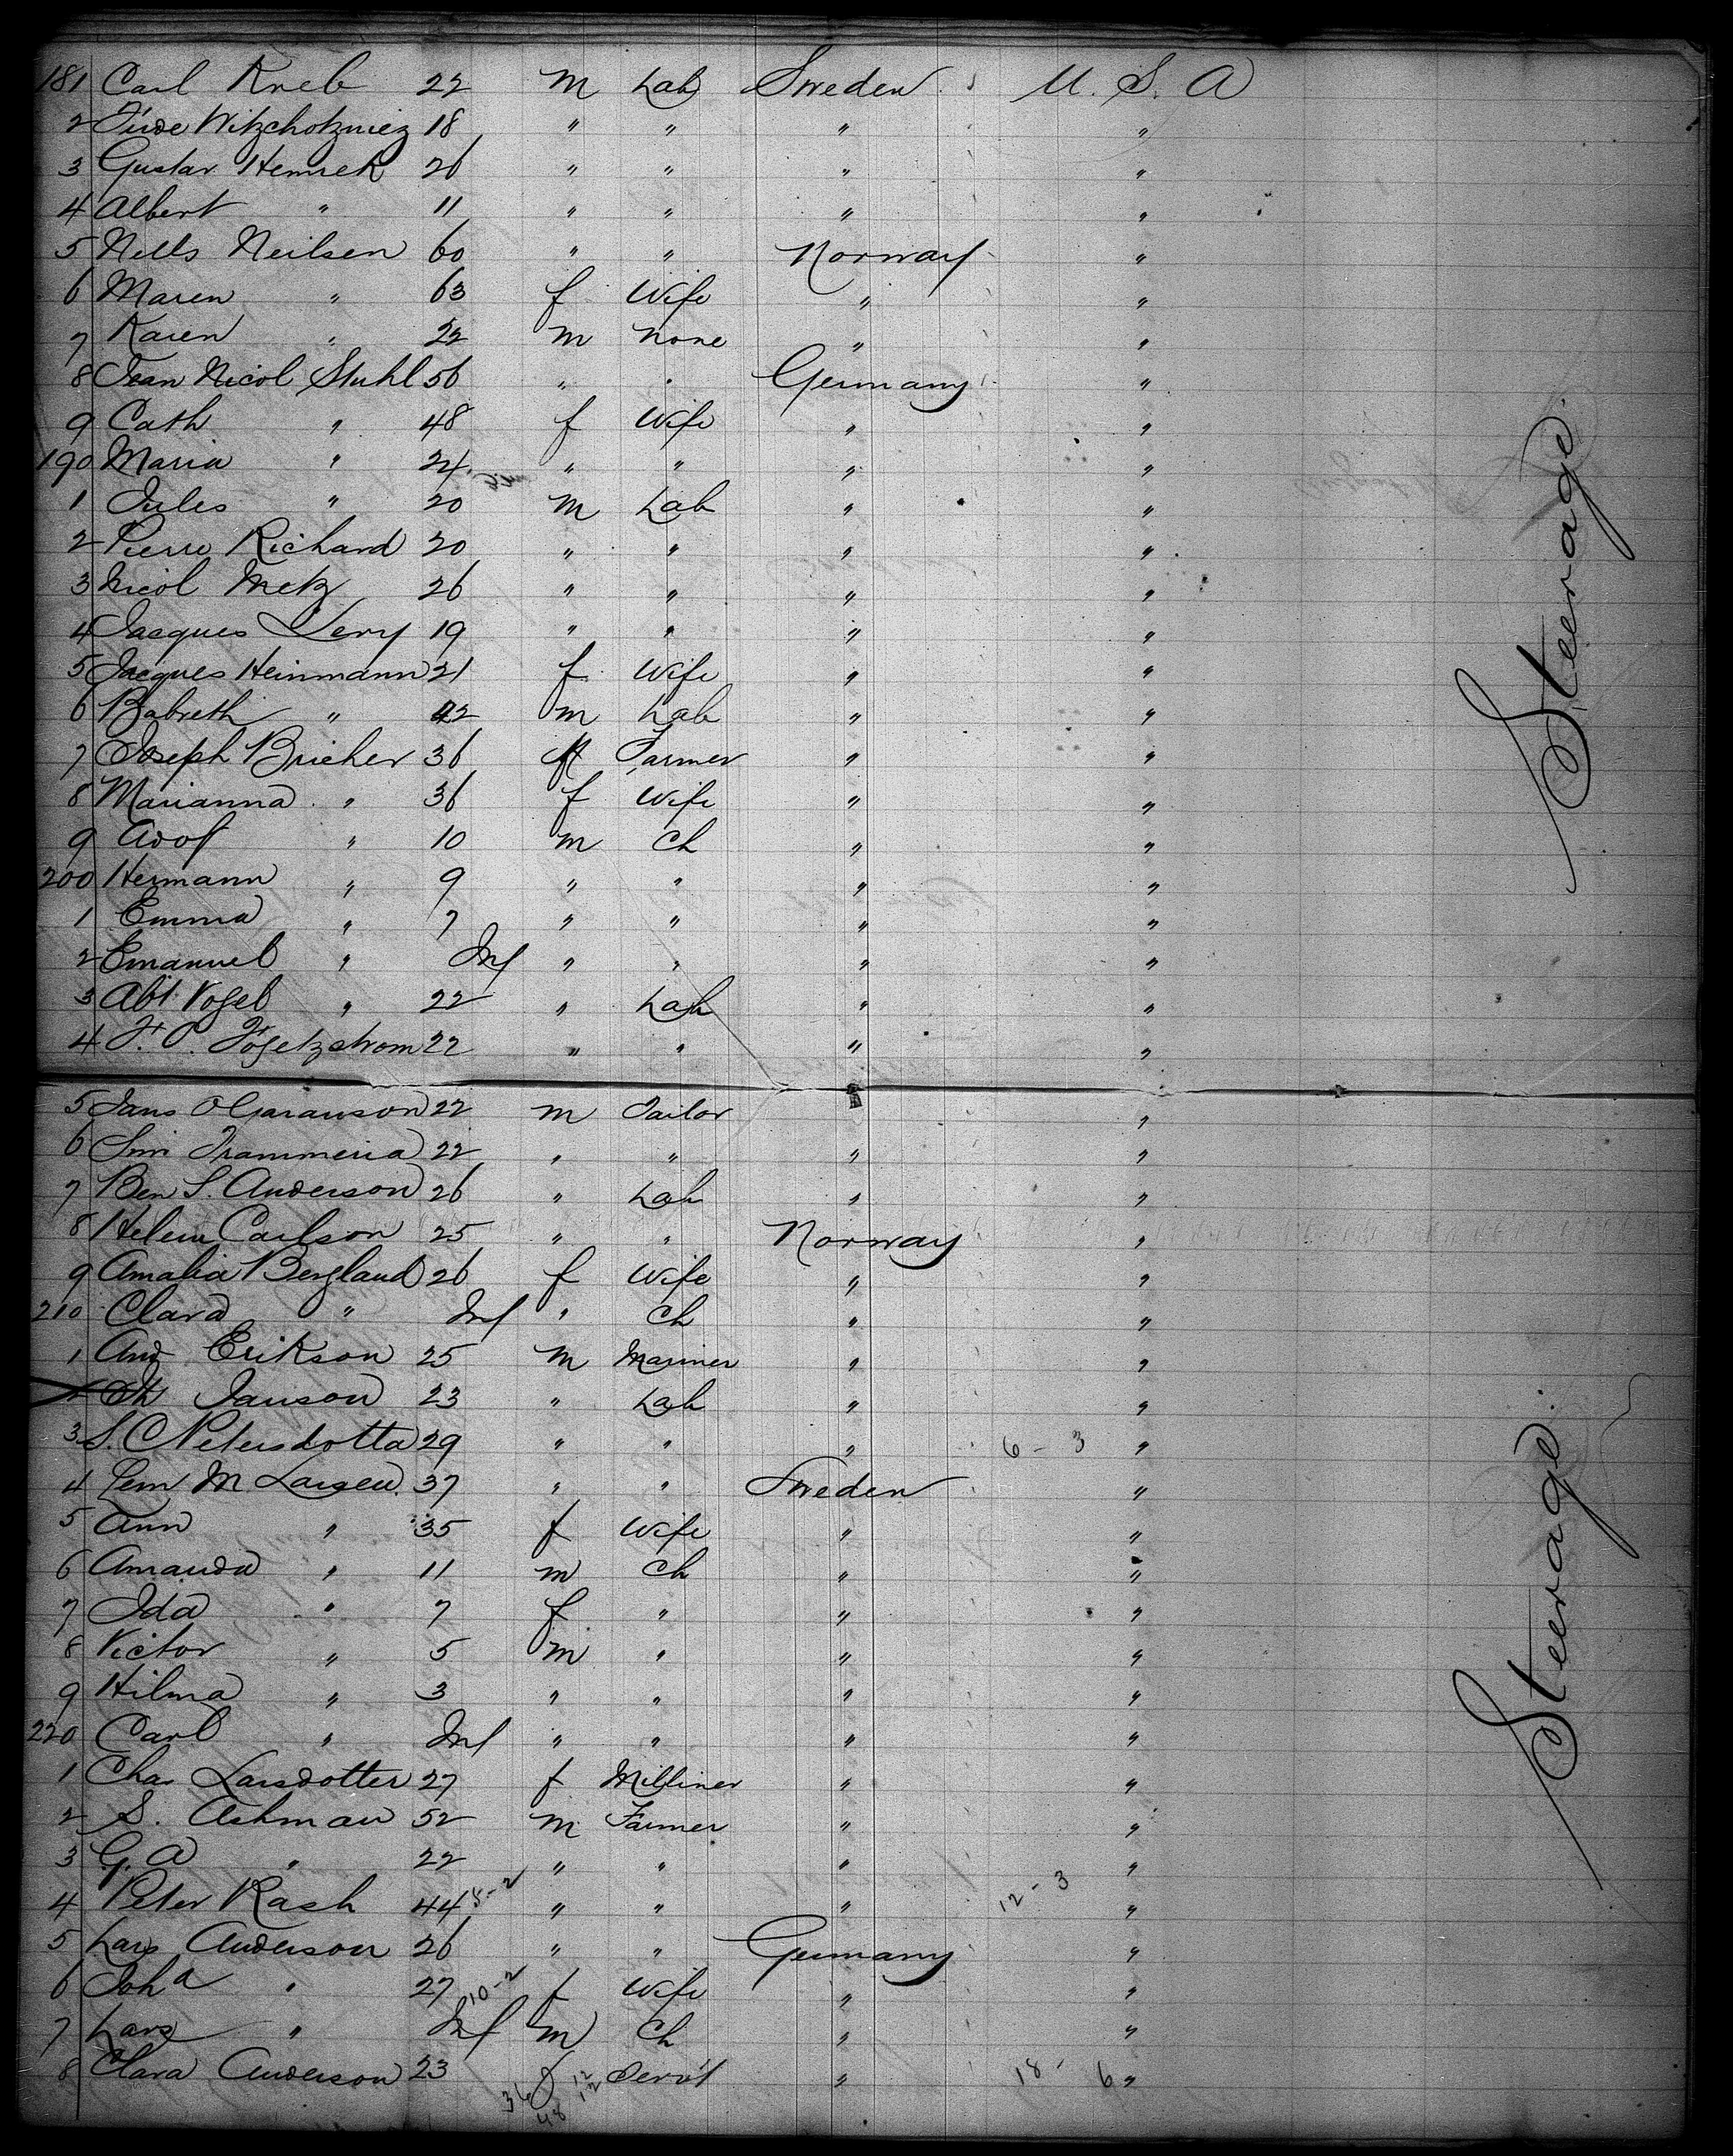 181 Carl Kreb 22 m Lab Sweden U. S. A
2 Witzchotzniez 18 " " " "
3 Gustav Hemrek 26 " " " "
4 Albert " 11 " " " "
5 Nells Neilsen 60 " " Norway "
6 Maren " 63 f Wife " "
7 Karen " 22 m none " "
8 Jean Nicol Stuhl 56 " " Germany "
9 Cath " 48 f Wife " "
190 Maria " 24 " " " "
1 Jules " 20 m Lab " "
2 Pierre Richard 20 " " " "
3 Nicol Metz 26 " " " "
4 Jacques Levy 19 " " " "
5 Jacques Heinmann 21 f Wife " "
6 Babreth " 42 m Lab " "
7 Joseph Bricher 36 Farmer " "
8 Marianna " 36 f Wife " "
9 Adof " 10 m Ch " "
200 Hermann " 9 " " " "
1 Emma " 7 " " " "
2 Emanuel " Inf " " " "
3 Abt Vogel " 22 " Lab " "
4 F. O. Fogetzstrom 22 " " " "
5 Jans O Garanson 22 m Tailor "
6 Trammeria 22 " " " "
7 Ben S. Anderson 26 " Lab " "
8 Helem Carlson 25 " " Norway "
9 Amalia Bergland 26 f Wife " "
210 Clara " Inf " Ch " "
1 And Erikson 25 m Mariner " "
2 Janson 23 " Lab " "
3 S. C Petersdotta 29 " " " 6 - 3 "
4 M Larsen 37 " " Sweden "
5 Ann " 35 f Wife " "
6 Amanda " 11 m Ch " "
7 Ida " 7 f " " "
8 Victor " 5 m " " "
9 Hilma " 3 " " " "
220 Carl " Inf " " " "
1 Chas Larsdotter 27 f Milliner " "
2 S. Ashman 52 m Farmer " "
3 G. A " 22 " " " "
4 Peter Rash 44 8-2 " " " 12 - 3 "
5 Lars Anderson 26 " " Germany "
6 Joha " 27 10-2 f Wife " "
7 Lars " Inf m Ch " "
8 Clara Anderson 23 f Servt " 18 - 6 "
36 48 12 12
Steerage.
Steerage.